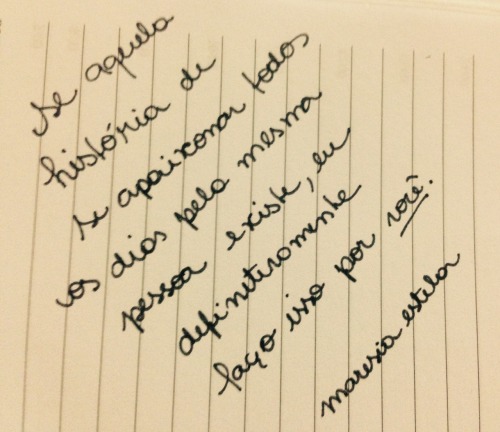 Se aquela
história de
se apaixonar todos
os dias pela mesma
pessoa existe, eu
definitivamente
faço isso por você.
maresia estelar